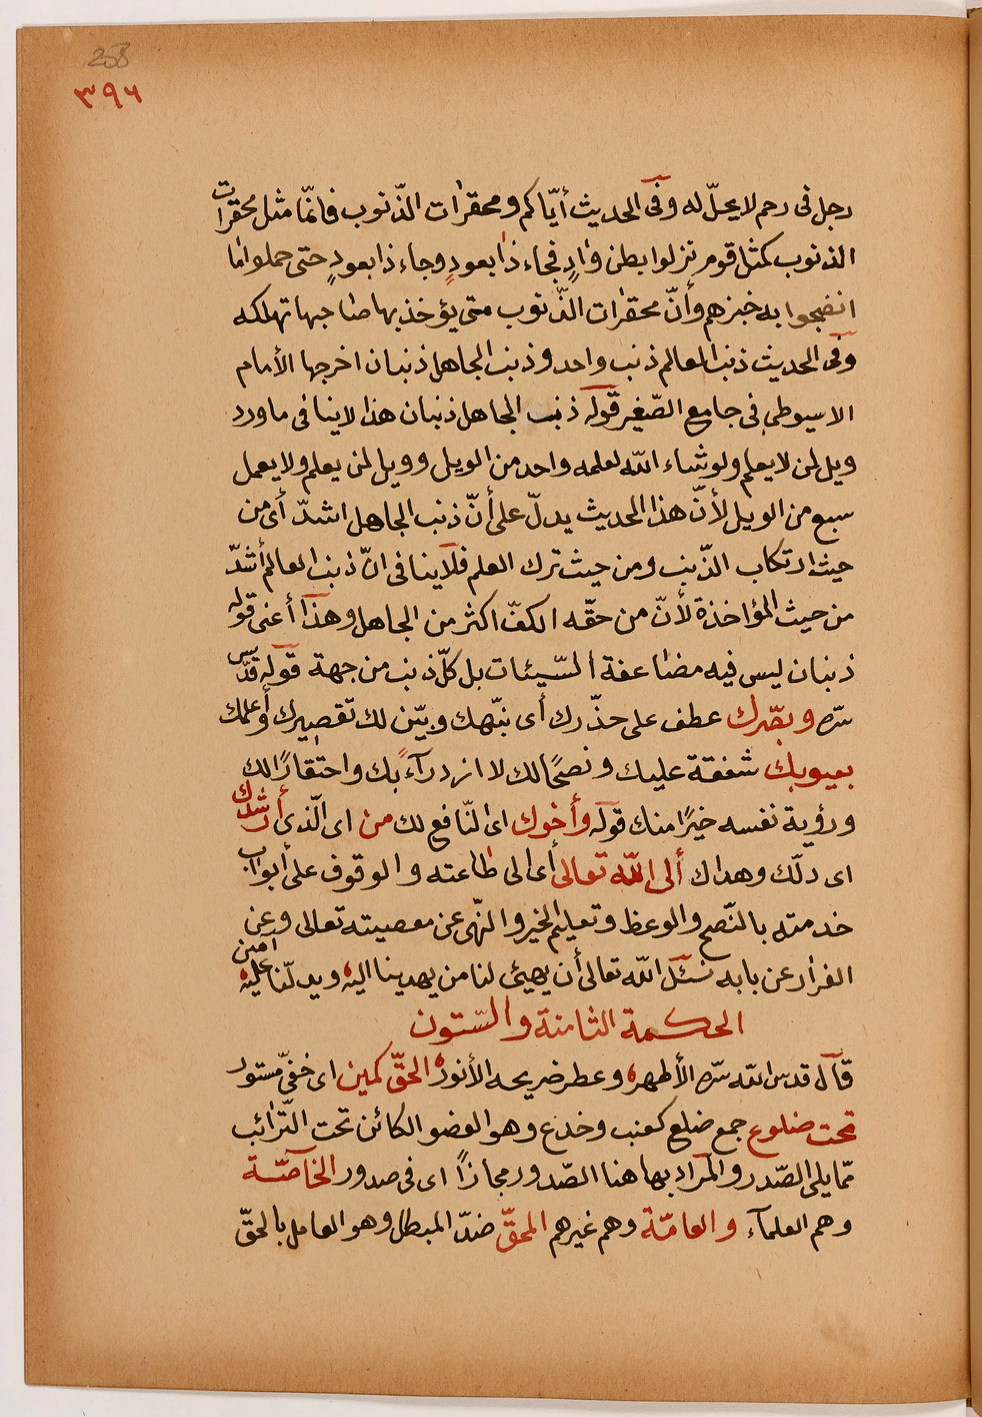 258
٣٩٦
رجل فى رحم لا يحلّ له وفى الحديث أيّاكم ومحقرات الذّنوب فانّما مثل محقرات
الذنوب كمثل قوم نزلوا بطن وادٍ فجاء ذا بعودٍ وجاء ذا بعودٍ حتى حملوا ما
انضجوا به خبزهم وأنّ محقرات الذّنوب متى يؤخذ بها صاحبها تهلكه
وفى الحديث ذنب العالم ذنب واحد وذنب الجاهل ذنبان اخرجها الأمام
الاسيوطى فى جامع الصّغير قوله ذنب الجاهل ذنبان هذا لا ينافى ما ورد
ويل لمن لا يعلم ولو شاء الله لعلمه واحد من الويل وويل لمن يعلم ولا يعمل
سبع من الويل لأنّ هذا الحديث يدلّ على أنّ ذنب الجاهل اشدّ أى من
حيث ارتكاب الذّنب ومن حيث ترك العلم فلا ينافى انّ ذنب العالم أشدّ
من حيث المؤاخذة لأنّ من حقّه الكفّ اكثر من الجاهل وهذا أعنى قوله
ذنبان ليس فيه مضاعفة السّيئات بل كلّ ذنب من جهة قوله قدّس
سرّه وبصّرك عطف على حذّرك أى نبّهك وبيّن لك تقصيرك وأعلمك
بعيوبك شفقة عليك ونصحًا لك لا ازدراءً بك واحتقارًا لك
ورؤية نفسه خيرًا منك قوله وأخوك اى النّافع لك من اى الّذى أرشدك
اى دلّك وهداك ألى الله تعالى أى الى طاعته والوقوف على أبواب
خدمته بالنّصح والوعظ وتعليم الخير والنّهى عن معصيته تعالى وعن
الفرار عن بابه نسئل الله تعالى أن يهيئ لنا من يهدينا اليه ويدلّنا عليه آمين
الحكمة الثامنة والسّتون
قال قدس الله سرّه الأطهر وعطر ضريحه الأنور الحقّ كمين اى خفىّ مستور
تحت ضلوع جمع ضلع كعنب وخدع وهو العضو الكائن تحت التّرائب
ممّا يلى الصّدر والمراد بها هنا الصّدور مجازًا اى فى صدور الخاصّة
وهم العلمآء والعامّة وهم غيرهم المحقّ ضدّ المبطل وهو العامل بالحقّ